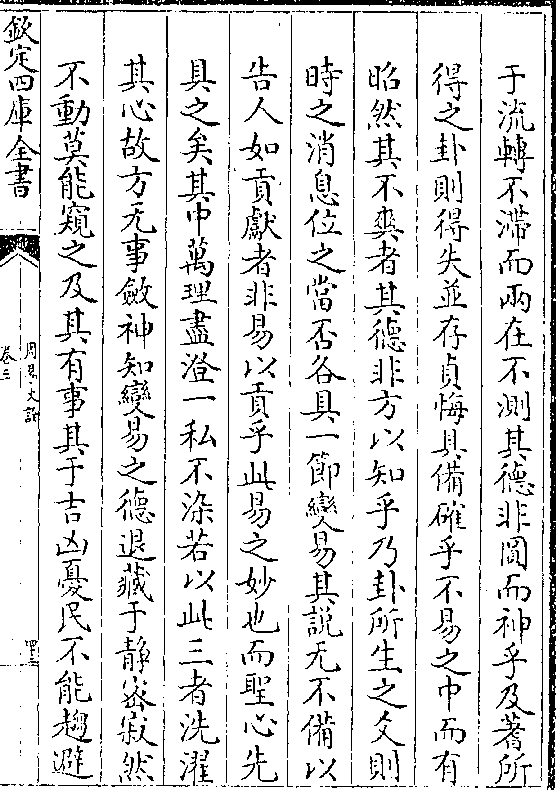 于流轉不滯而兩在不測其德非圓而神乎及蓍所
得之卦則得失並存貞悔具備確乎不易之中而有
昭然其不爽者其德非方以知乎乃卦所生之爻則
時之消息位之當否各具一節變易其說无不備以
告人如貢獻者非易以貢乎此易之妙也而聖心先
具之矣其中萬理盡澄一私不染若以此三者洗濯
其心故方无事斂神知變易之德退藏于靜密寂然
不動莫能窺之及其有事其于吉凶憂民不能趨避
欽定四庫全書
周易文詮
卷三